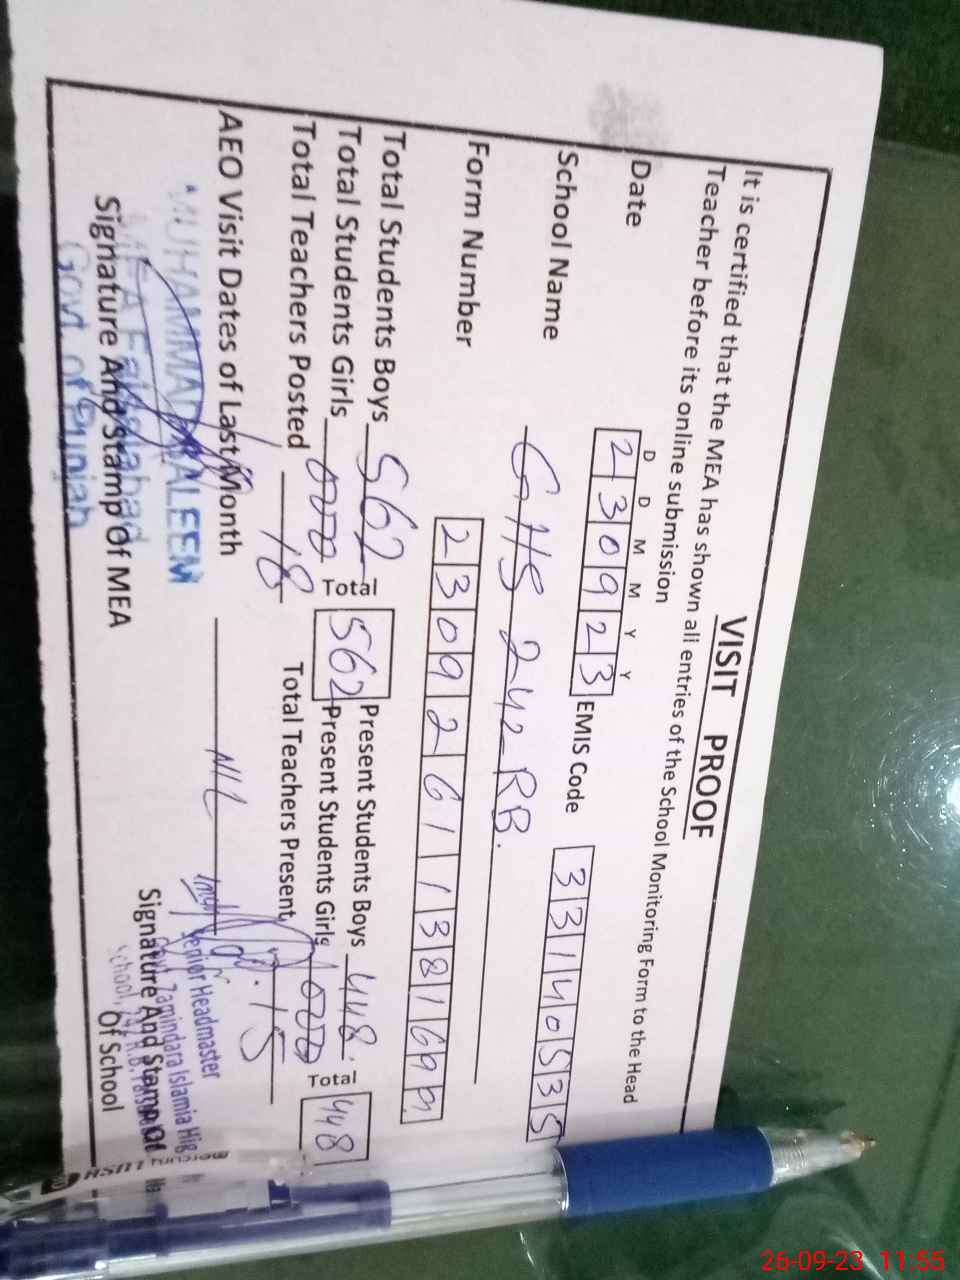 VISIT PROOF
It is certified that the MEA has shown all entries of the School Monitoring Form to the Head
Teacher before its online submission
D D M M Y Y
Date 230923 EMIS Code 33140535
School Name GHS 242 RB.
Form Number 23092611381699
Total Students Boys 562 Total 562 Present Students Boys 448. Total 448
Total Students Girls 000 Present Students Girls 000
Total Teachers Posted 18 Total Teachers Present 15
AEO Visit Dates of Last Month Nil
MUHAMMAD ALEEM
MEA Faisalabad
Govt. of Punjab
Signature And Stamp Of MEA
Senior Headmaster
Govt. Zamindara Islamia Hig
School,
Signature And Stamp Of
Of School
26-09-23 11:55